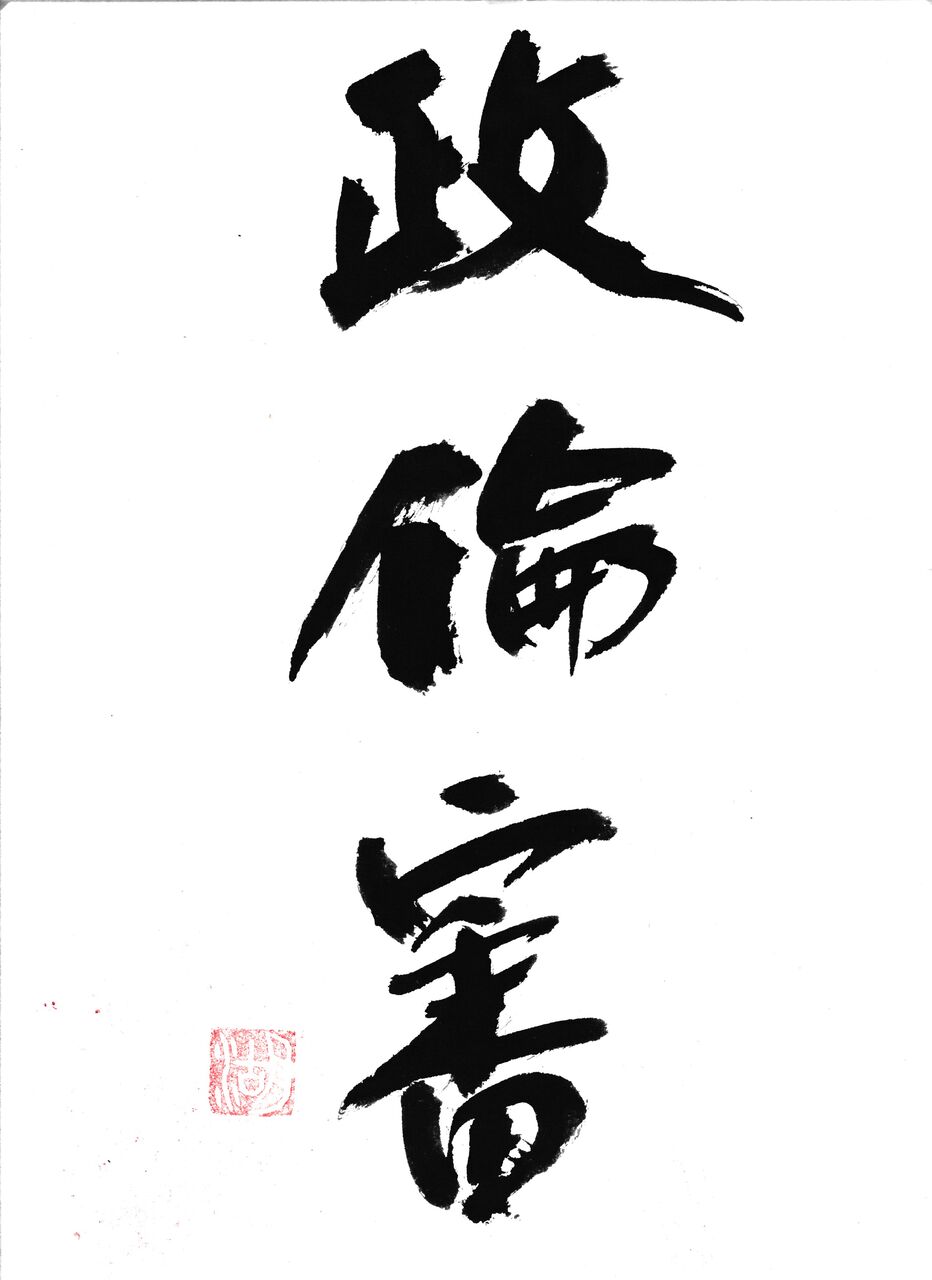 政倫審